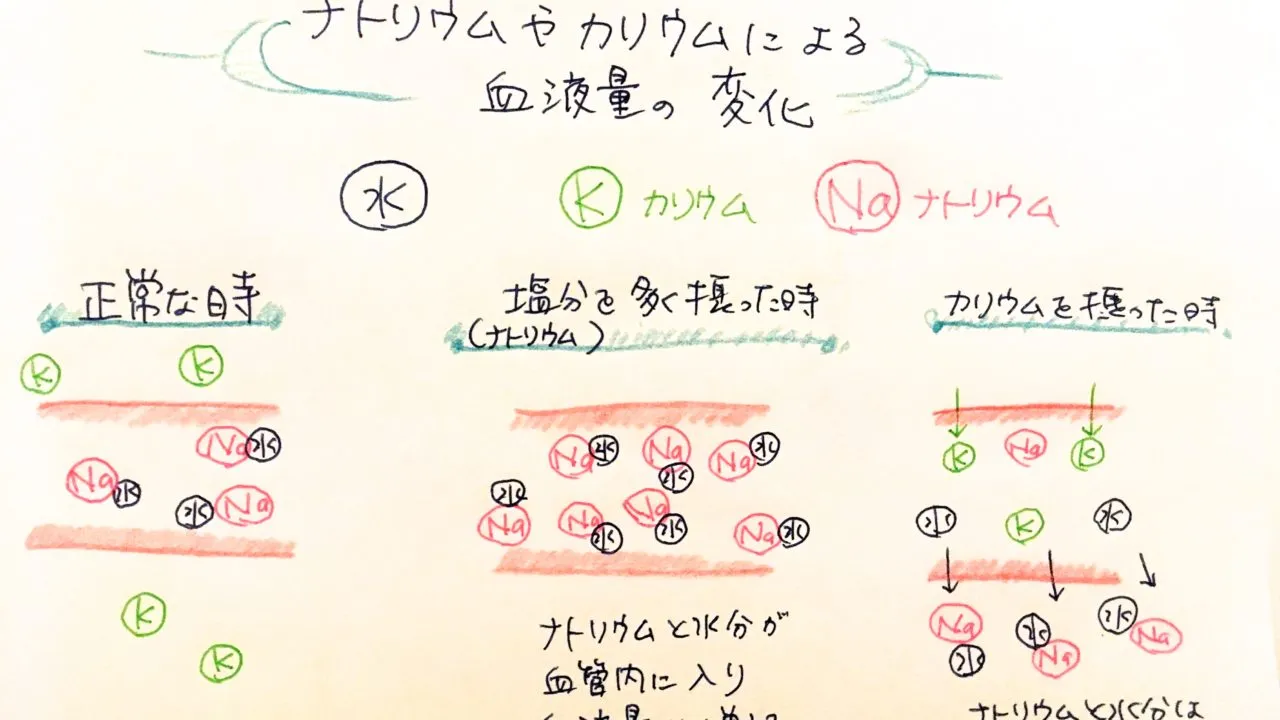 ナトリウムやカリウムによる
血液量の変化
水
K カリウム
Na ナトリウム
正常な時
K
K
Na 水
Na 水
水 Na
K
K
塩分を多く摂った時
(ナトリウム)
Na 水
Na 水
Na 水
水 Na
Na 水
Na 水
Na 水
ナトリウムと水分が
血管内に入り
血液量
カリウムを摂った時
K
Na
K
水
K
水
Na 水
水 Na
水 Na
ナトリウムと水分は